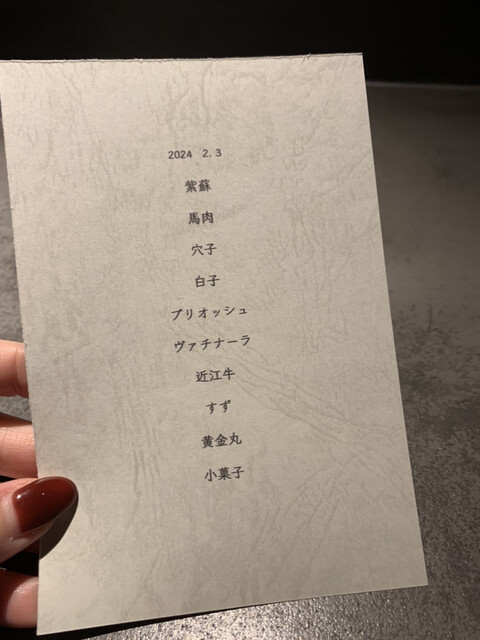 2024 2.3
紫蘇
馬肉
穴子
白子
ブリオッシュ
ヴァチナーラ
近江牛
すず
黄金丸
小菓子